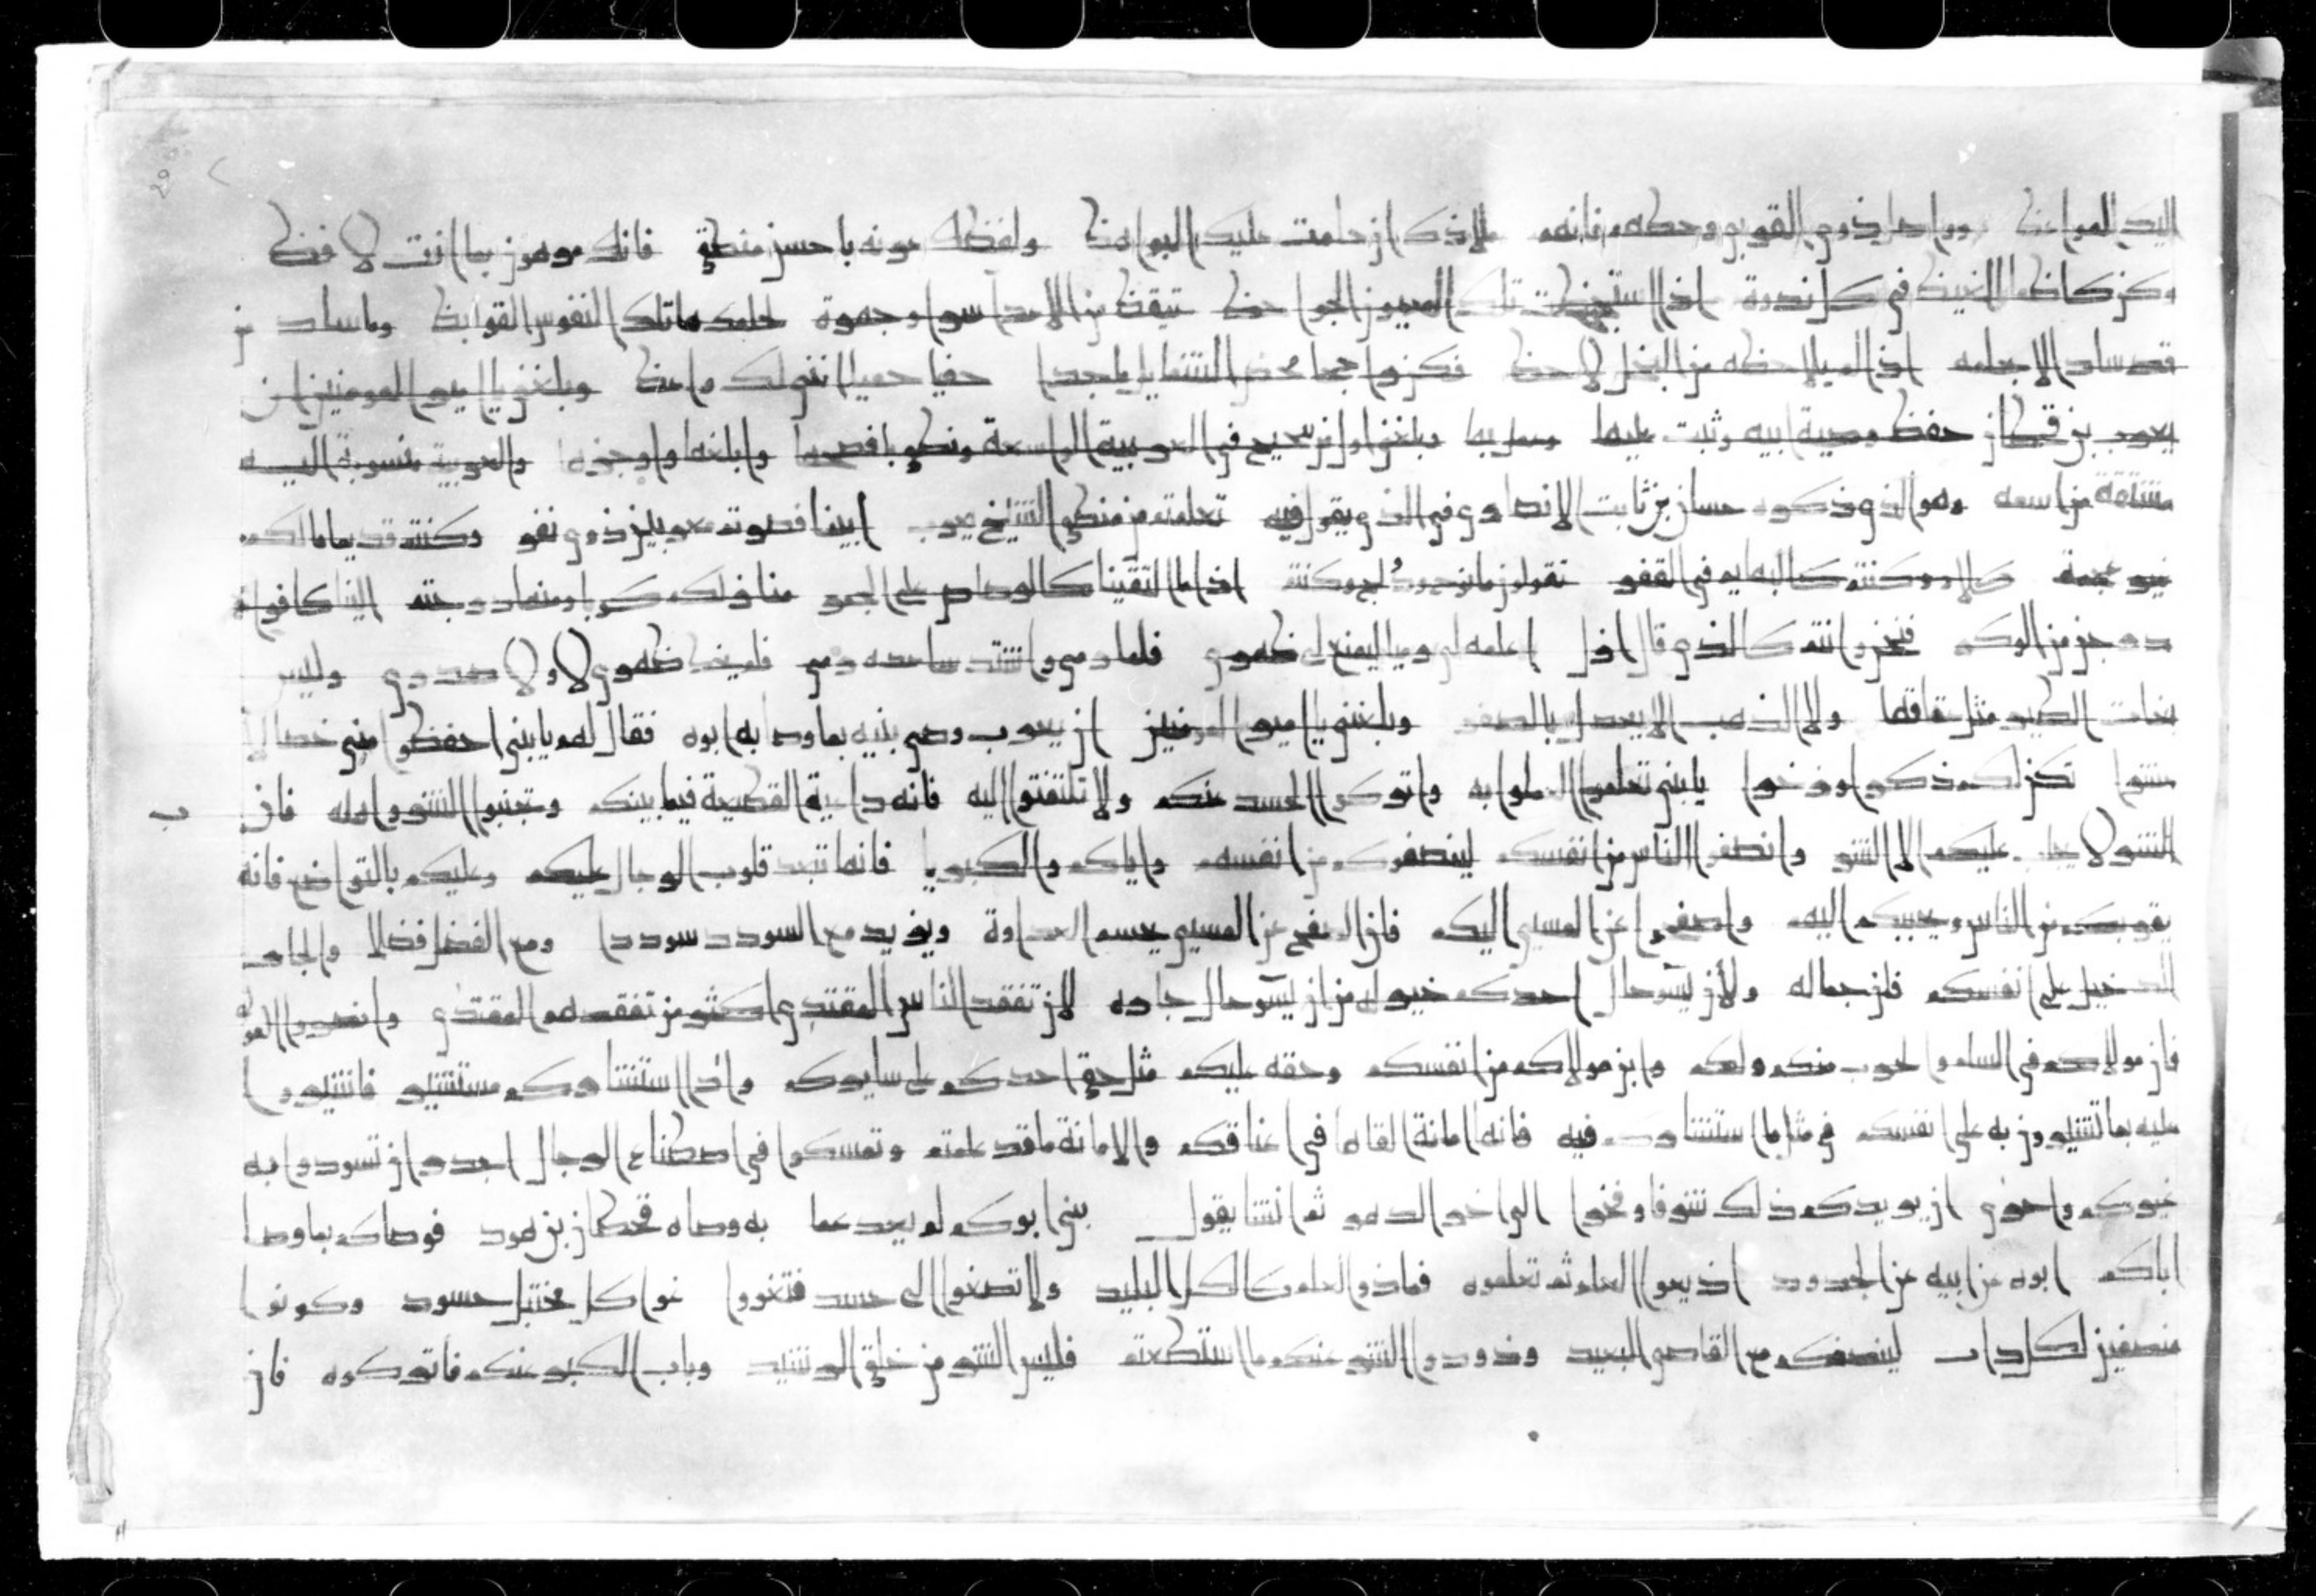 اليك المواعظ وواصل ذوي القربى وحطهم فانهم ملاذك ان حامت عليك البواهظ ولفظك عربه باحسن منطق فانك مرهون بما انت لافظ
وكن كاظم الغيظ في كل ندوة اذا استيقظت تلك العيون الجواحظ تيقظ من الاعدا سرا وجهرة لحلمك هاتلك النفوس القوايظ وما ساد من
قد ساد الا بحلمه اذا لم يلاحظه من البخل لاحظ فكن راجحا محض الشمايل ماجدا حفيا حميلا انني لك واعظ وبلغني يا امير المومنين ان
يعرب بن قحطان حفظ وصية ابيه وثبت عليها وعمل بها وبلغني اول من سجيح في العربية الواسعة ونطق بافصحها وابلغها واوجزها والعربية منسوبة اليه
مشتقة من اسمه وهو الذي ذكره حسان بن ثابت الانصاري في الذي يقول فيه تعلمتم من منطق الشيخ يعرب ابينا فصرتم معربين ذوي نفر وكنتم قديما ما لكم
غير عجمة كلام وكنتم كالبهايم في القفر تقولون ما نوح ود لج وكنتم اذا ما التقينا كالوداد على الجمر منازلكم كوبا ومنها درجتم الينا كافراخ
درجن من الوكر فنحن وانتم كالذي قال اول اعلمه لرميا ليمنع لي ظهري فلما رمى واشتد ساعده رمى فلم يخط ظهري لا ولا صدري وليس
بغاث الطير مثل عتاقها ولا الذهب الا يعدل بالصفر وبلغني يا امير المومنين ان يعرب وصى بنيه بما وصا به ابوه فقال لهم يا بني احفظوا مني خصالا
عشرا تكن لكم ذكرا وذخرا يا بني تعلموا العلم واعملوا به واتركوا الحسد عنكم ولا تلتفتوا اليه فانه داعية القطيعة فيما بينكم وتجنبوا الشر واهله فان
الشر لا يجلب عليكم الا الشر وانصفوا الناس من انفسكم لينصفوكم من انفسهم واياكم والكبريا فانها تبعد قلوب الرجال عليكم وعليكم بالتواضع فانه
يقربكم من الناس ويحببكم اليهم واصفحوا عن المسي اليكم فان الصفح عن المسي يحسم العداوة ويزيد مع السودد سوددا ومع الفضل فضلا والجار
الدخيل على انفسكم فلن جماله ولان يسوحال احدكم خير له من ان يسوحال جاره لان تفقد الناس المقتدي اكثر من تفقدهم المقتدى وانصروا الموالي
فان مولاكم في السلم والحرب منكم ولكم وابن مولاكم من انفسكم وحقه عليكم مثل حق احدكم على سايركم واذا استشاركم مستشير فاشيروا
عليه بما تشيرون به على انفسكم في مثل ما استشاركم فيه فانها امانة القاها في اعناقكم والامانة ما قد علمتم وتمسكوا في اصطناع الرجال اجدر ان تسودوا به
غيركم واحرى ان يريدكم ذلك شرفا وفخرا الى اخر الدهر ثم انشا يقول بني ابوكم لم يعد عما به وصاه قحطان بن هود فوصاكم بما وصا
اباكم ابوه عن ابيه عن الجدود اذيعوا العلم ثم تعلموه فما ذو العلم كالكل البليد ولا تصغوا الى حسد فتغووا غوا كل مختبل حسود وكونوا
منصفين لكل دان لينصفكم مع القاصي البعيد وذودوا الشر عنكم ما استطعتم فليس الشر من خلق الرشيد وباب الكبر عنكم فاتركوه فان